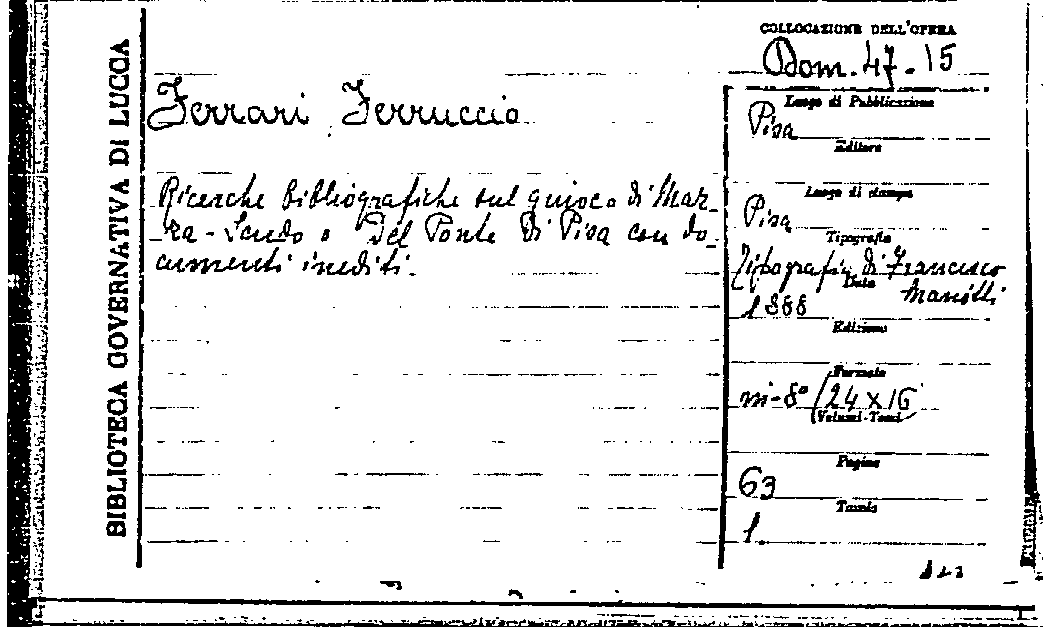 BIBLIOTECA GOVERNATIVA DI LUCCA
COLLOCAZIONE DELL'OPERA
Dom. 47. 15
Ferrari Ferruccio
Ricerche bibliografiche sul giuoco di Maz-
za-Scudo o Del Ponte di Pisa con do-
cumenti inediti.
Luogo di Pubblicazione
Pisa
Editore
Luogo di stampa
Pisa
Tipografia
Tipografia di Francesco
Mariotti
Data
1888
Edizione
Formato
in-8° (24 x 16
(Volumi-Tomi)
Pagine
63
Tavole
1.